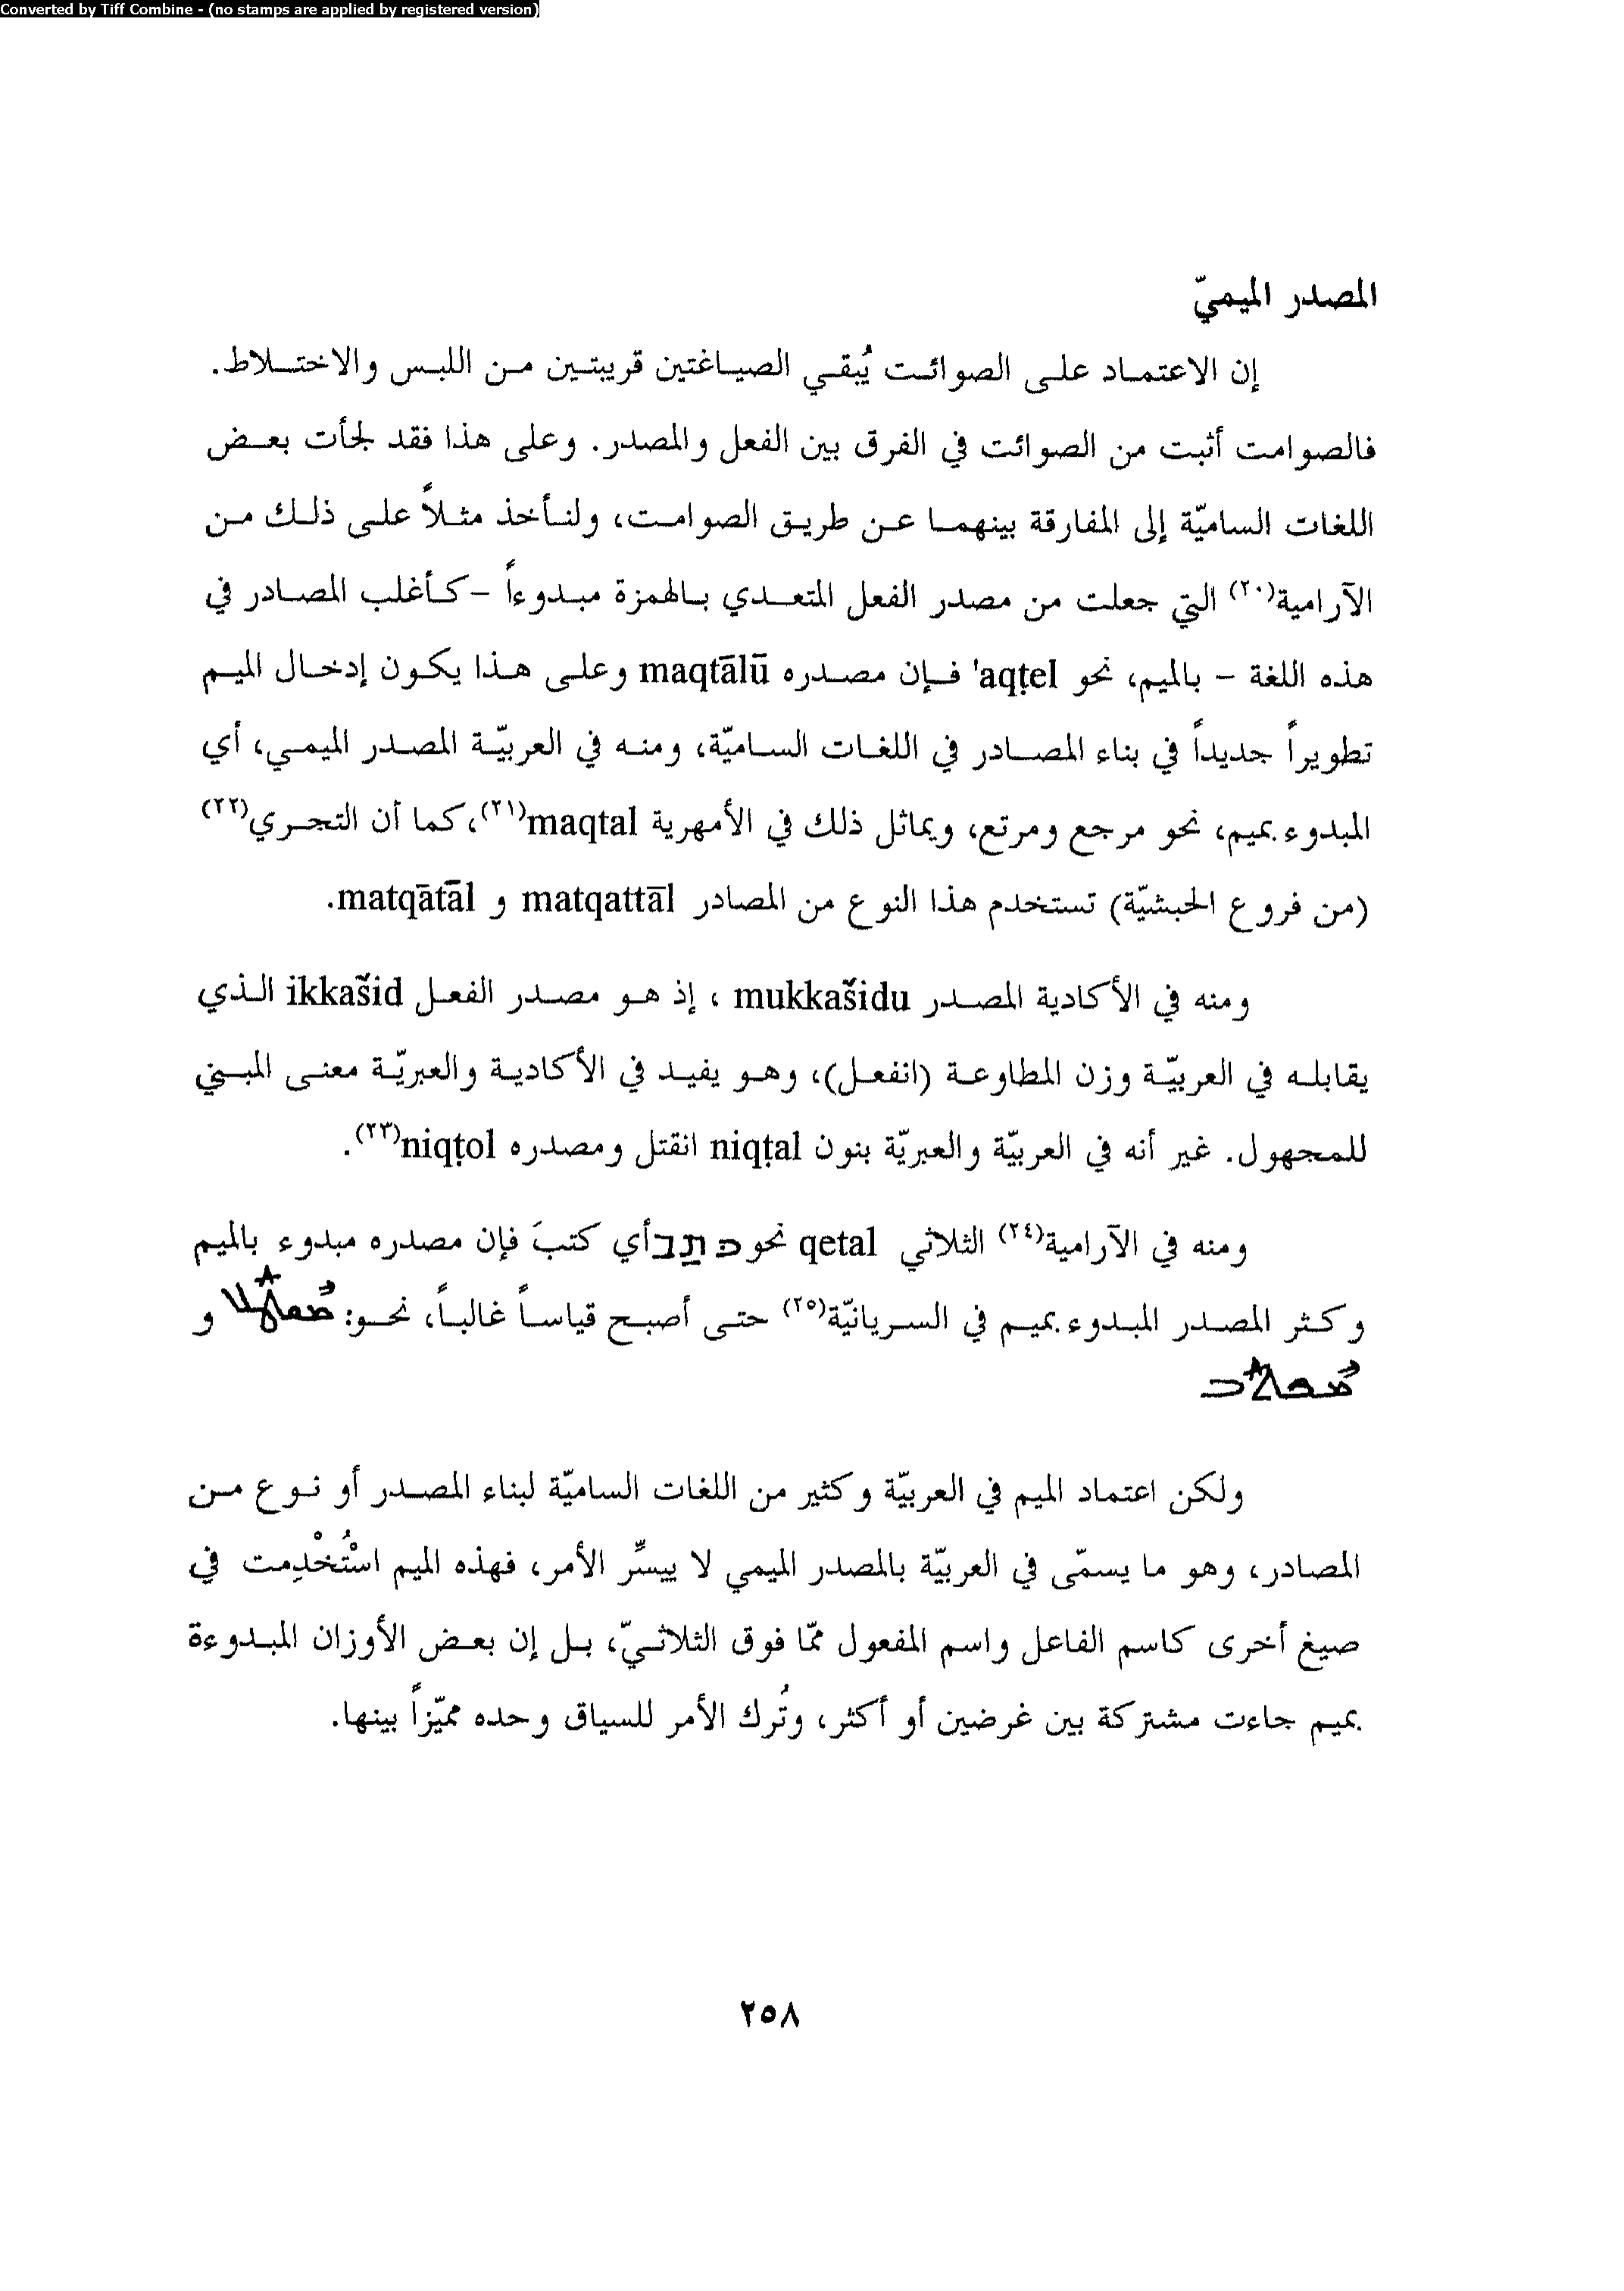 Converted by Tiff Combine - (no stamps are applied by registered version)
المصدر الميميّ
إن الاعتماد على الصوائت يُبقي الصياغتين قريبتين من اللبس والاختلاط.
فالصوامت أثبت من الصوائت في الفرق بين الفعل والمصدر. وعلى هذا فقد لجأت بعض
اللغات الساميّة إلى المفارقة بينهما عن طريق الصوامت، ولنأخذ مثلاً على ذلك من
الآرامية(٢٠) التي جعلت من مصدر الفعل المتعدي بالهمزة مبدوءاً -كأغلب المصادر في
هذه اللغة - بالميم، نحو 'aqṭel فإن مصدره maqtālū وعلى هذا يكون إدخال الميم
تطويراً جديداً في بناء المصادر في اللغات الساميّة، ومنه في العربيّة المصدر الميمي، أي
المبدوء بميم، نحو مرجع ومرتع، ويماثل ذلك في الأمهرية maqtal(٢١)، كما أن التجري(٢٢)
(من فروع الحبشيّة) تستخدم هذا النوع من المصادر matqattāl و matqātāl.
ومنه في الأكادية المصدر mukkašidu ، إذ هو مصدر الفعل ikkašid الذي
يقابله في العربيّة وزن المطاوعة (انفعل)، وهو يفيد في الأكادية والعبريّة معنى المبني
للمجهول. غير أنه في العربيّة والعبريّة بنون niqṭal انقتل ومصدره niqṭol(٢٣).
ومنه في الآرامية(٢٤) الثلاثي qetal نحو כתב أي كتبَ فإن مصدره مبدوء بالميم
وكثر المصدر المبدوء بميم في السريانيّة(٢٥) حتى أصبح قياساً غالباً، نحو: و
ولكن اعتماد الميم في العربيّة وكثير من اللغات الساميّة لبناء المصدر أو نوع من
المصادر، وهو ما يسمّى في العربيّة بالمصدر الميمي لا ييسِّر الأمر، فهذه الميم اسْتُخْدِمت في
صيغ أخرى كاسم الفاعل واسم المفعول ممّا فوق الثلاثيّ، بل إن بعض الأوزان المبدوءة
بميم جاءت مشتركة بين غرضين أو أكثر، وتُرك الأمر للسياق وحده مميّزاً بينها.
٢٥٨